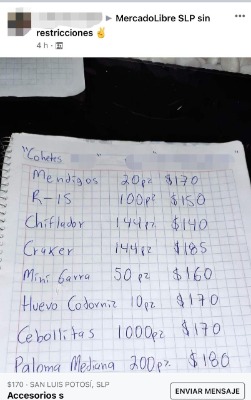 MercadoLibre SLP sin
restricciones ✌
4 h ·
"Cohetes " "
Mendigos 20pz $170
R-15 100pz $150
Chiflador 144pz $140
Craker 144pz $185
Mini Garra 50 pz $160
Huevo Codorniz 10pz $170
Cebollitas 1000pz $170
Paloma Mediana 200pz. $180
$170 · SAN LUIS POTOSÍ, SLP
Accesorios s
ENVIAR MENSAJE